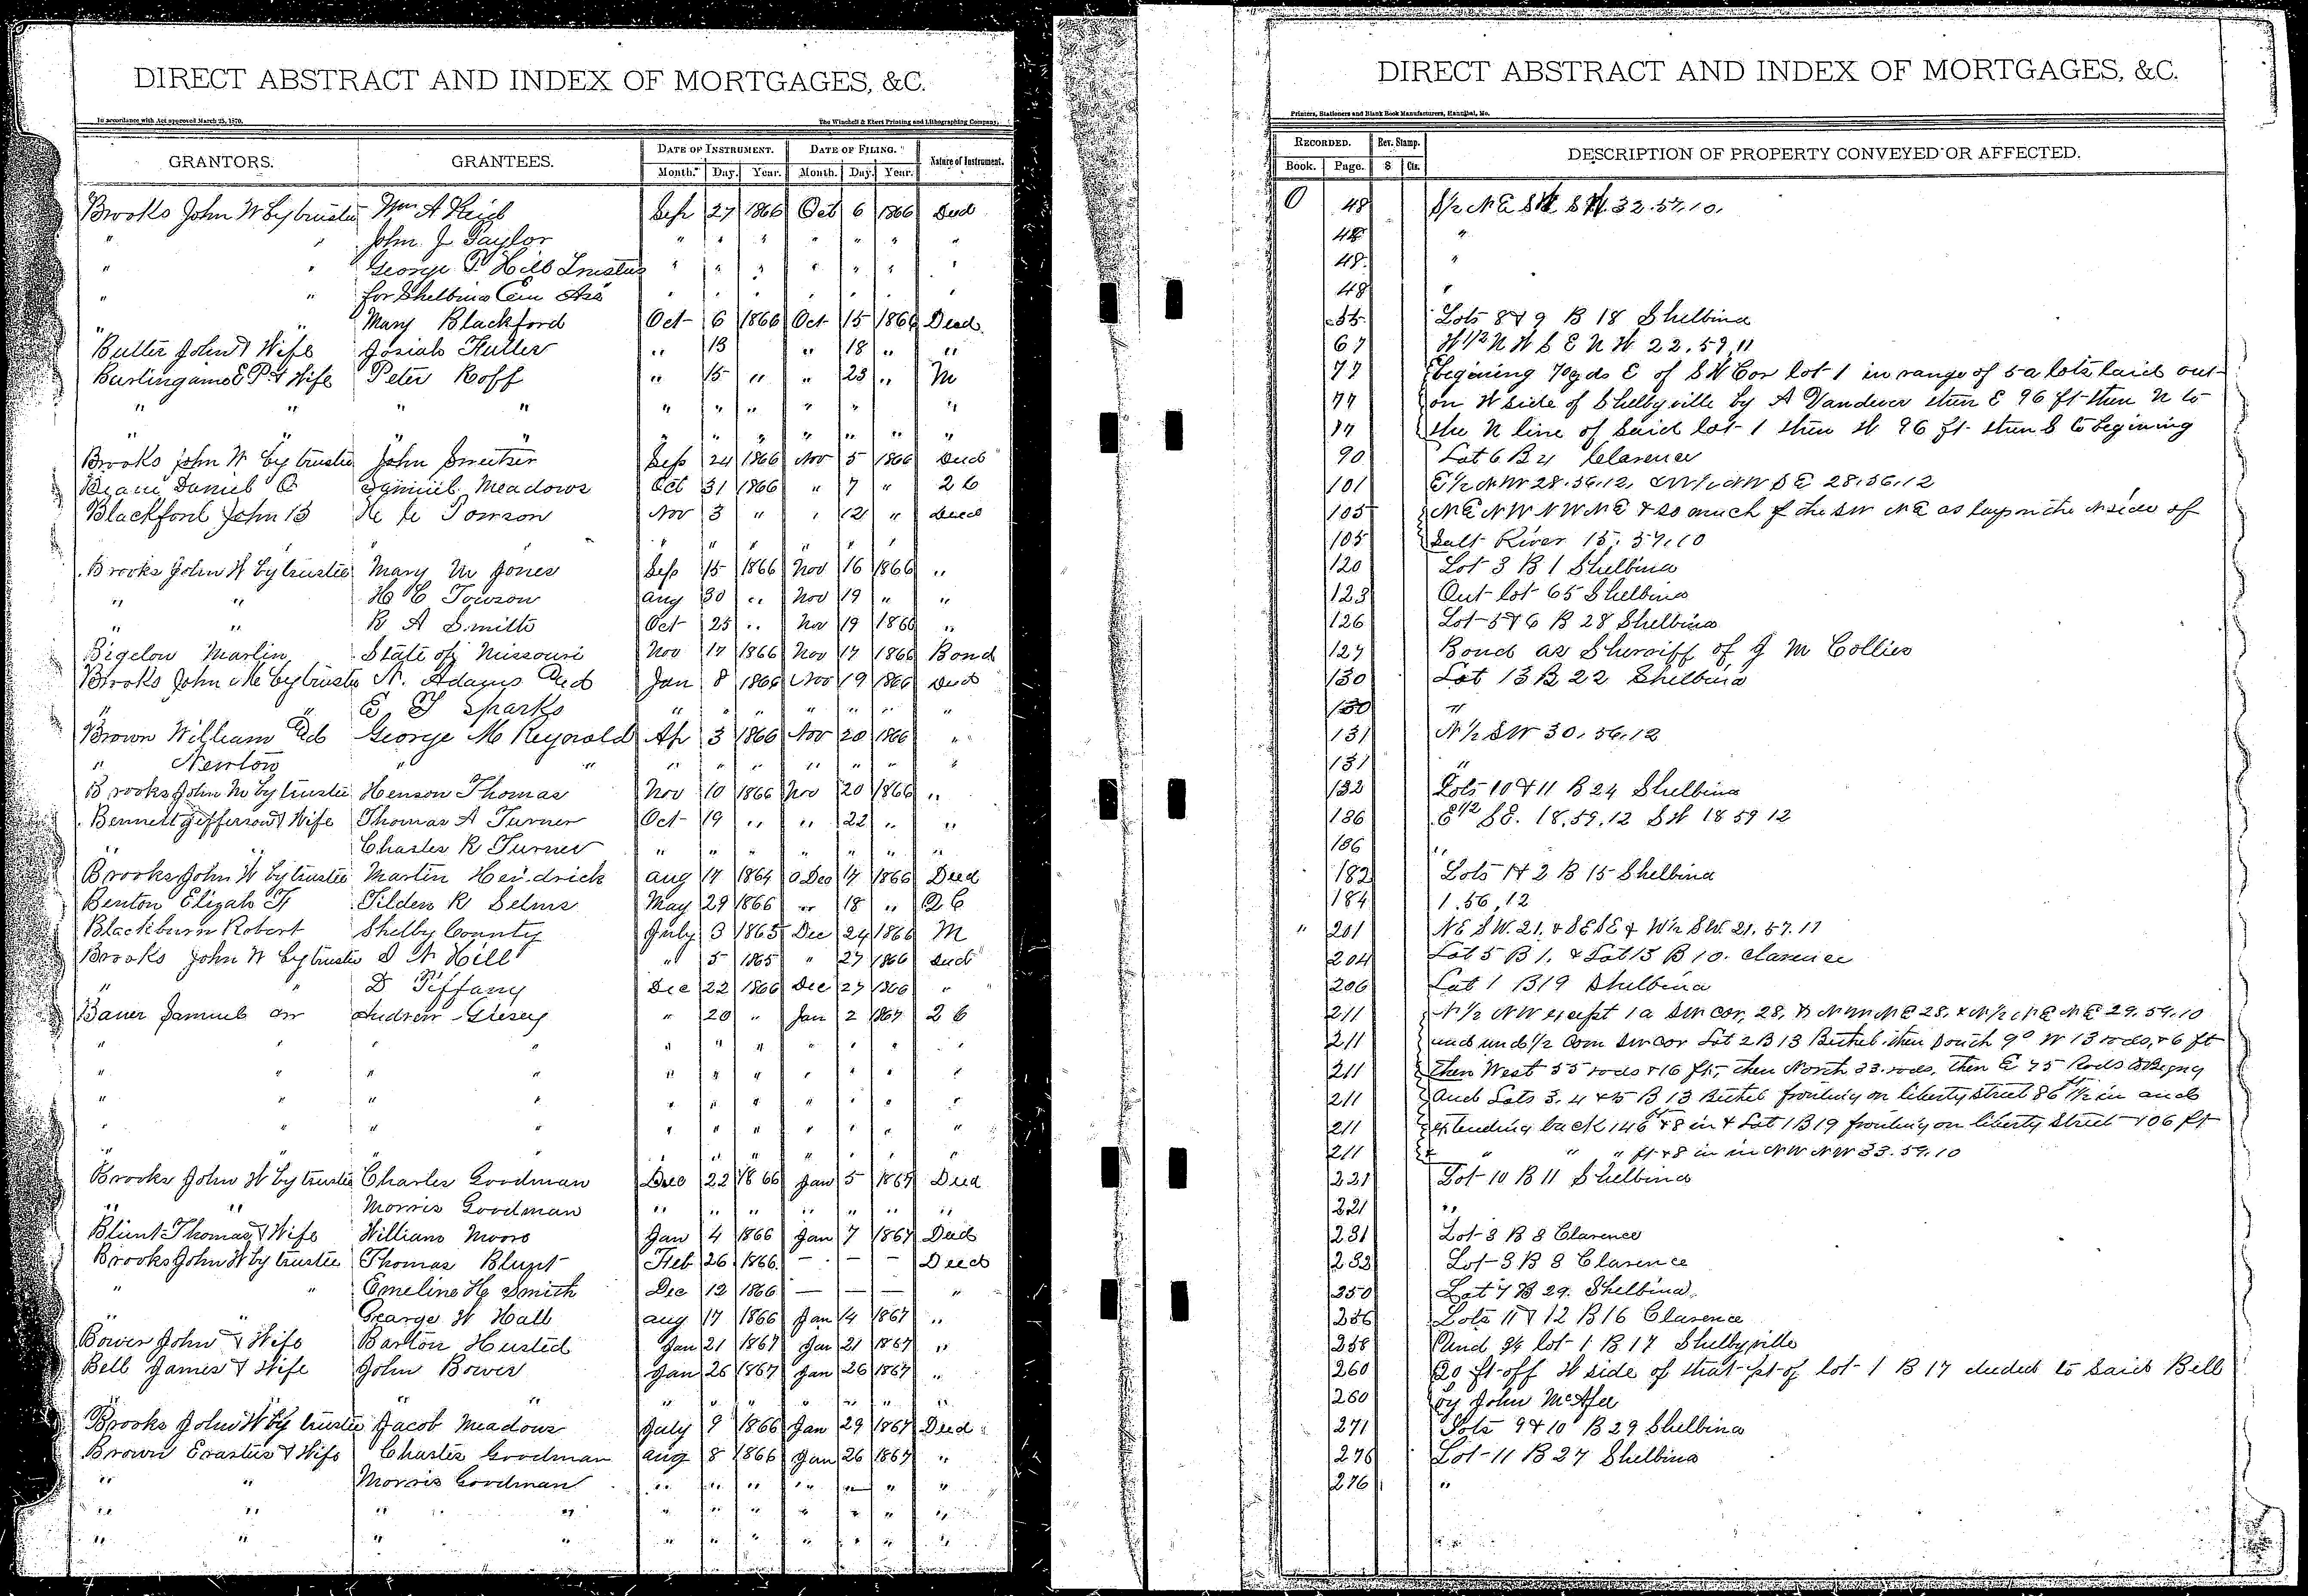 DIRECT ABSTRACT AND INDEX OF MORTGAGES, &C.
In accordance with Act approved March 25, 1870.
The Winchell & Ebert Printing and Lithographing Company,
GRANTORS. GRANTEES. DATE OF INSTRUMENT. DATE OF FILING. Nature of Instrument.
Month. Day. Year. Month. Day. Year.
Brooks John W by trustee Wm A Reid Sep 27 1866 Oct 6 1866 Deed
" " John J Taylor " " " " " " "
" " George P. Hill Trustee " " " " " " "
" " for Shelbina Cem Ass " " " " " " "
" " Mary Blackford Oct 6 1866 Oct 15 1866 Deed
Butler John & Wife Josiah Fuller " 13 " 18 " "
Burlingame E P. & Wife Peter Roff " 15 " " 23 " M
" " " " " " " " " "
" " " " " " " " " " "
Brooks John W by trustee John Smetzer Sep 24 1866 Nov 5 1866 Deed
Daniel Samuel Meadows Oct 31 1866 " 7 " 2 C
Blackford John B Towson Nov 3 " " 12 " Deed
" " " " " "
Brooks John W by trustee Mary M Jones Sep 15 1866 Nov 16 1866 "
" " H C Towson Aug 30 " Nov 19 " "
" " R A Smith Oct 25 " Nov 19 1866 "
Bigelow Martin State of Missouri Nov 17 1866 Nov 17 1866 Bond
Brooks John by trustee N. Adams Jan 8 1866 Nov 19 1866 Deed
" " E Sparks " " " " " " "
Brown William George M Reynold Ap 3 1866 Nov 20 1866 "
" Newton " " " " " " " " "
Brooks John W by trustee Henson Thomas Nov 10 1866 Nov 20 1866 "
Bennett Jefferson & Wife Thomas A Turner Oct 19 " " 22 " "
" " Charles R Turner " " " " " " "
Brooks John W by trustee Martin Hendrick Aug 17 1864 Dec 17 1866 Deed
Benton Elizah F Tilden R Selms May 29 1866 " 18 " Q C
Blackburn Robert Shelby County July 3 1865 Dec 24 1866 M
Brooks John W by trustee Hill " 5 1865 " 27 1866 Deed
" " D Tiffany Dec 22 1866 Dec 27 1866 "
Bauer Samuel Andrew Giesey " 20 " Jan 2 1867 2 C
" " " " " " " " " " "
" " " " " " " " " " "
" " " " " " " " " " "
" " " " " " " " " " "
" " " " " " " " " "
Brooks John W by trustee Charles Goodman Dec 22 1866 Jan 5 1867 Deed
" " Morris Goodman " " " " " " "
Blunt Thomas & Wife William Moore Jan 4 1866 Jan 7 1867 Deed
Brooks John W by trustee Thomas Blunt Feb 26 1866 — — — Deed
" " Emeline H Smith Dec 12 1866 — — — "
" " George W Hall Aug 17 1866 Jan 14 1867 "
Bower John & Wife Barton Husted Jan 21 1867 Jan 21 1867 "
Bell James & Wife John Bower Jan 26 1867 Jan 26 1867 "
" " " " " " " " " " "
Brooks John W by trustee Jacob Meadows July 9 1866 Jan 29 1867 Deed
Brown Erastus & Wife Charles Goodman Aug 8 1866 Jan 26 1867 "
" " Morris Goodman " " " " " " "
" " " " " " " " " " "
" " " " " " " " " " "
DIRECT ABSTRACT AND INDEX OF MORTGAGES, &C.
Printers, Stationers and Blank Book Manufacturers, Hannibal, Mo.
RECORDED. Rev. Stamp. DESCRIPTION OF PROPERTY CONVEYED OR AFFECTED.
Book. Page. $ Cts.
O 48 S½ N E SW 32.57.10.
48 "
48 "
48 "
Lots 8 & 9 B 18 Shelbina
67 W½ N W S E N W 22.59.11
77 begining 70 yds E of S W Cor lot 1 in range of 5 a lots laid out
77 on W side of Shelbyville by A Vandever then E 96 ft then N to
77 the N line of said lot 1 then W 96 ft then S to begining
90 Lot 6 B 4 Clarence
101 E½ NW 28.56.12, NW S E 28.56.12
105 N E NW NW NE & so much of the SW NE as lays on the N side of
105 Salt River 15.57.10
120 Lot 3 B 1 Shelbina
123 Out lot 65 Shelbina
126 Lot 5 & 6 B 28 Shelbina
127 Bond as Sheriff of J M Collier
130 Lot 13 B 22 Shelbina
130 "
131 N½ SW 30.56.12
131 "
132 Lots 10 & 11 B 24 Shelbina
136 E½ SE. 18.59.12 SW 18 59 12
136 "
182 Lots 1 & 2 B 15 Shelbina
184 1.56.12
" 201 NE SW. 21. & SE SE & W½ SW. 21.57.11
204 Lot 5 B 1. & Lot 15 B 10. Clarence
206 Lot 1 B 19 Shelbina
211 N½ NW except 1 a SW cor. 28, & NW NE 28, & N½ NE NE 29.59.10
211 and und ½ Com SW cor Lot 2 B 13 Bethel then South 9° W 13 rods, & 6 ft
211 then West 55 rods & 16 ft, then North 33. rods, then E 75 Rods to Begng
211 and Lots 3, 4 & 5 B 13 Bethel fronting on liberty street 86 ft ½ in and
211 extending back 146 ft & 8 in & Lot 1 B 19 fronting on liberty Street 106 ft
211 & " " " ft & 8 in in NW NW 33.59.10
221 Lot 10 B 11 Shelbina
221 "
231 Lot 3 B 8 Clarence
232 Lot 3 B 8 Clarence
250 Lot 7 B 29. Shelbina
256 Lots 11 & 12 B 16 Clarence
258 Und ¾ lot 1 B. 17 Shelbyville
260 20 ft off W side of that pt of lot 1 B 17 deeded to said Bell
260 by John McAfee
271 Lots 9 & 10 B 29 Shelbina
276 Lot 11 B 27 Shelbina
276 "